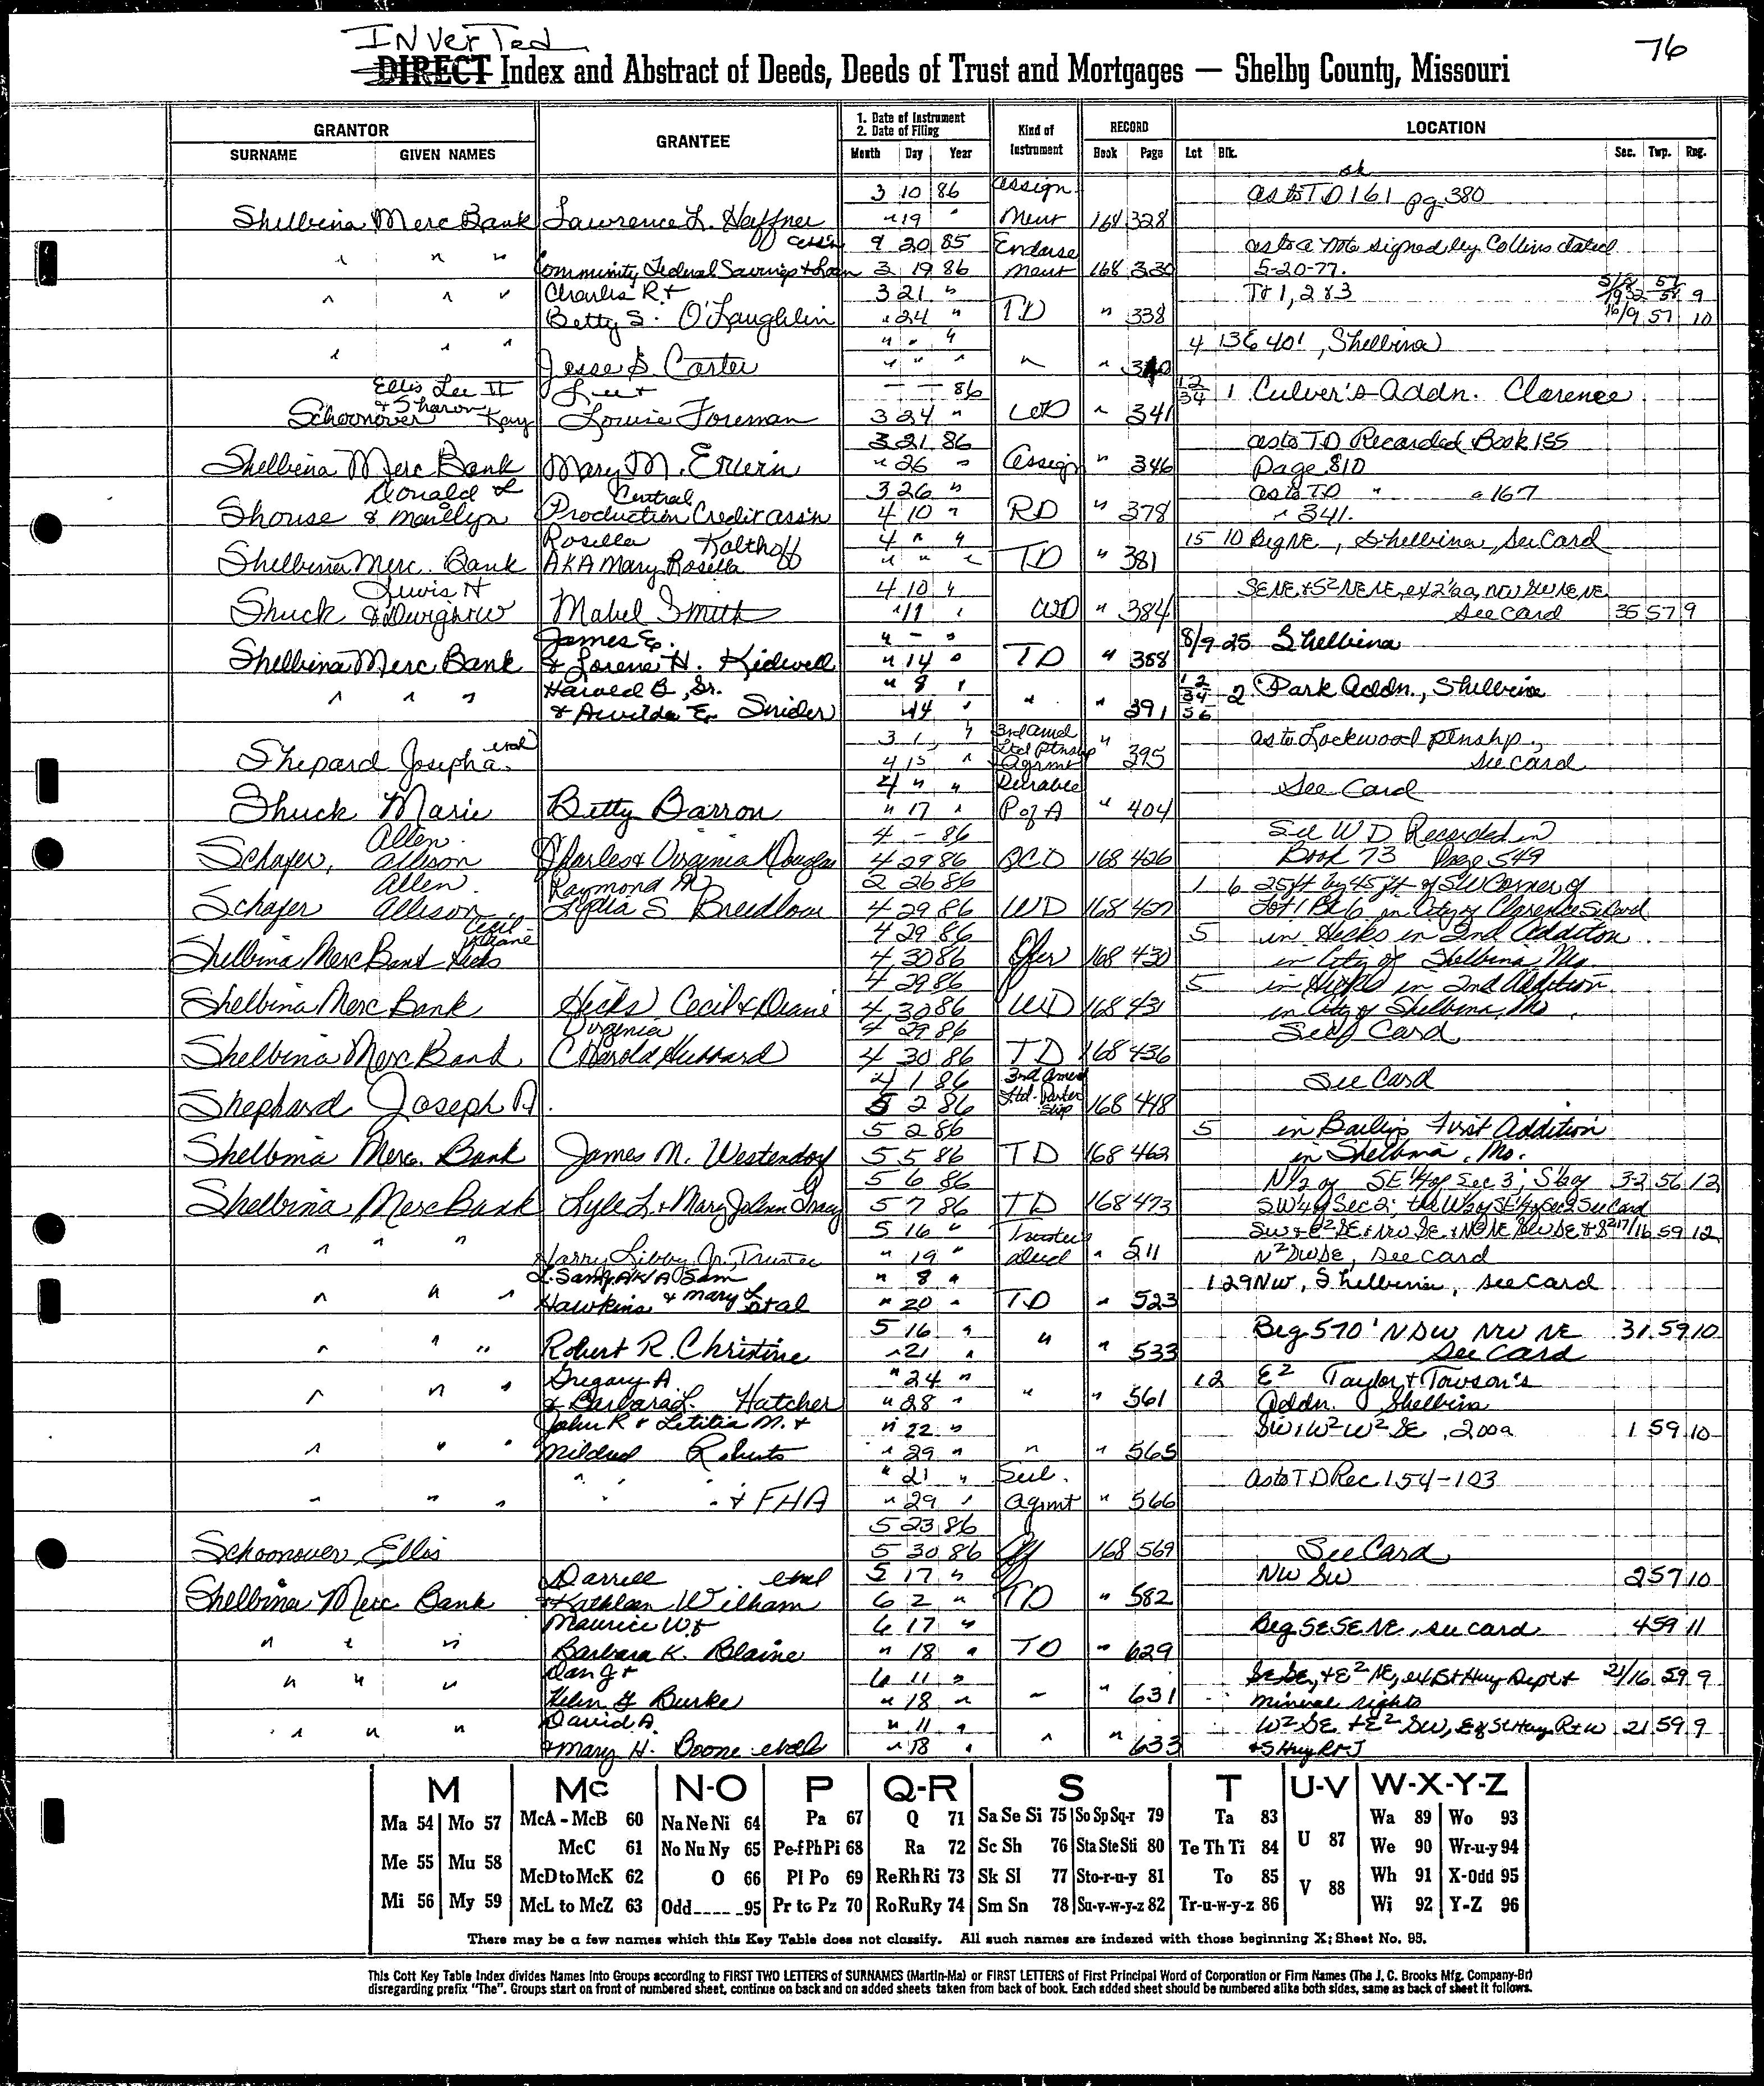 INVerTed
76
DIRECT Index and Abstract of Deeds, Deeds of Trust and Mortgages — Shelby County, Missouri
GRANTOR GRANTEE 1. Date of Instrument 2. Date of Filing Kind of Instrument RECORD LOCATION
SURNAME GIVEN NAMES Month Day Year Book Page Lot Blk. Sec. Twp. Rng.
3 10 86 Assign as to TD 161 pg 380
Shelbina Merc Bank Lawrence L. Haffner " 19 " ment 168 328
9 20 85 Endorse as to a note signed by Collins dated
" " " Community Federal Savings & Loan 3 19 86 ment 168 330 5-20-77.
Charles R & 3 21 " Tr 1, 2 & 3
Betty S. O'Laughlin " 24 " TD " 338 16/9 57 10
" " " 4 136 401, Shelbina
" " " Jesse S. Carter " " " " "
Ellis Lee II Lee & — — 86 12/34 1 Culver's Addn. Clarence
Schoonover & Sharon Kay Louise Foreman 3 24 " WD " 341
3 21 86 as to TD Recorded Book 155
Shelbina Merc Bank Mary M. Erwin " 26 " Assign " 346 Page 810
Donald L Central 3 26 " as to TD " " 167
Shouse & Marilyn Production Credit Ass'n 4 10 " RD " 378 " 341.
Rosella Kalthoff 4 " " 15 10 Beg NE, Shelbina, See Card
Shelbina Merc. Bank AKA Mary Rosella " " " TD " 381
Lewis H 4 10 "
Shuck & Dwight W Mabel Smith " 11 " WD " 384 See Card 35 57 9
James E. " — " 8/9 25 Shelbina
Shelbina Merc Bank & Lorene H. Kidwell " 14 " TD " 388
Harold B., Sr. " 8 " 12/34/56 2 Park Addn., Shelbina
" " " & Arvilda E. Snider " 14 " " " 391
etal 3 1 " 3rd Amd Ltd Ptnshp as to Lockwood ptnshp.,
Shepard Joseph A. 4 15 " Agrmt " 395 See Card
4 " " Durable See Card
Shuck Marie Betty Barron " 17 " P of A " 404
Allen 4 — 86 See WD Recorded in
Schafer, Allison Charles & Virginia Douglas 4 29 86 QCD 168 426 Book 73 Page 549
Allen Raymond 2 26 86 1 6 25ft by 45 ft of SW Corner of
Schafer Allison Lydia S Breedlove 4 29 86 WD 168 427 Lot 1 Bl 6 in City of Clarence See Card
Cecil & Diane 4 29 86 5 in Hicks in 2nd Addition
Shelbina Merc Bank Hicks 4 30 86 168 430 in City of Shelbina Mo.
4 29 86 5 in Hicks in 2nd Addition
Shelbina Merc Bank Hicks Cecil & Diane 4 30 86 WD 168 431 in City of Shelbina, Mo.
Virginia 4 29 86 See Card
Shelbina Merc Bank C Harold Hubbard 4 30 86 TD 168 436
4 1 86 3rd Amed See Card
Shephard Joseph A. 5 2 86 Ltd. Partership 168 448
5 2 86 5 in Baileys First Addition
Shelbina Merc. Bank James M. Westendorf 5 5 86 TD 168 462 in Shelbina, Mo.
5 6 86 N½ of SE¼ of Sec 3; S½ of 3-2 56 12
Shelbina Merc Bank Lyle L. & Mary JoAnn Gray 5 7 86 TD 168 473 SW¼ of Sec 2; the W½ of SE¼ of Sec 2 See Card
5 16 " Trustees 17/16 59 12
" " " Harry Libby Jr., Trustee " 19 " deed " 511 N²SWSE, See Card
L. Samy AKA Sam " 8 " 1 29 NW, Shelbina, see Card
" " " Hawkins & Mary L etal " 20 " TD " 523
5 16 " Beg 570' N SW NW NE 31 59 10
" " " Robert R. Christine " 21 " " " 533 See Card
Gregory A. " 24 " 12 E² Taylor & Towson's
" " " & Barbara L. Hatcher " 28 " " " 561 Addn. Shelbina
John R & Letitia M. & " 22 " SW, W² W² SE, 200a 1 59 10
" " " Mildred Roberts " 29 " " " 565
" " " 21 " Sub. as to TD Rec 154-103
" " " " & FHA " 29 " Agmt " 566
5 23 86
Schoonover, Ellis 5 30 86 Aff 168 569 See Card
Darrell etal 5 17 " NW SW 2 57 10
Shelbina Merc Bank & Kathleen Wilham 6 2 " TD " 582
Maurice W & 6 17 " Beg SE SE NE, see card 4 59 11
" " " Barbara K. Blaine " 18 " TD " 629
Dan J & 6 11 " SE SE, & E² NE, ex St Hwy Dept & 21/16 59 9
" " " Helen G Burke " 18 " " " 631 mineral rights
David A. " 11 " W² SE & E² SW, Ex St Hwy Rt W 21 59 9
" " " & Mary H. Boone etal " 18 " " " 633 & S Hwy Rt J
M Mc N-O P Q-R S T U-V W-X-Y-Z
Ma 54 Mo 57 McA - McB 60 Na Ne Ni 64 Pa 67 Q 71 Sa Se Si 75 So Sp Sq-r 79 Ta 83 U 87 Wa 89 Wo 93
McC 61 No Nu Ny 65 Pe-f Ph Pi 68 Ra 72 Sc Sh 76 Sta Ste Sti 80 Te Th Ti 84 We 90 Wr-u-y 94
Me 55 Mu 58 McD to McK 62 O 66 Pl Po 69 Re Rh Ri 73 Sk Sl 77 Sto-r-u-y 81 To 85 V 88 Wh 91 X-Odd 95
Mi 56 My 59 McL to McZ 63 Odd____95 Pr to Pz 70 Ro Ru Ry 74 Sm Sn 78 Su-v-w-y-z 82 Tr-u-w-y-z 86 Wi 92 Y-Z 96
There may be a few names which this Key Table does not classify. All such names are indexed with those beginning X; Sheet No. 95.
This Cott Key Table Index divides Names into Groups according to FIRST TWO LETTERS of SURNAMES (Martin-Ma) or FIRST LETTERS of First Principal Word of Corporation or Firm Names (The J. C. Brooks Mfg. Company-Br)
disregarding prefix "The". Groups start on front of numbered sheet, continue on back and on added sheets taken from back of book. Each added sheet should be numbered alike both sides, same as back of sheet it follows.